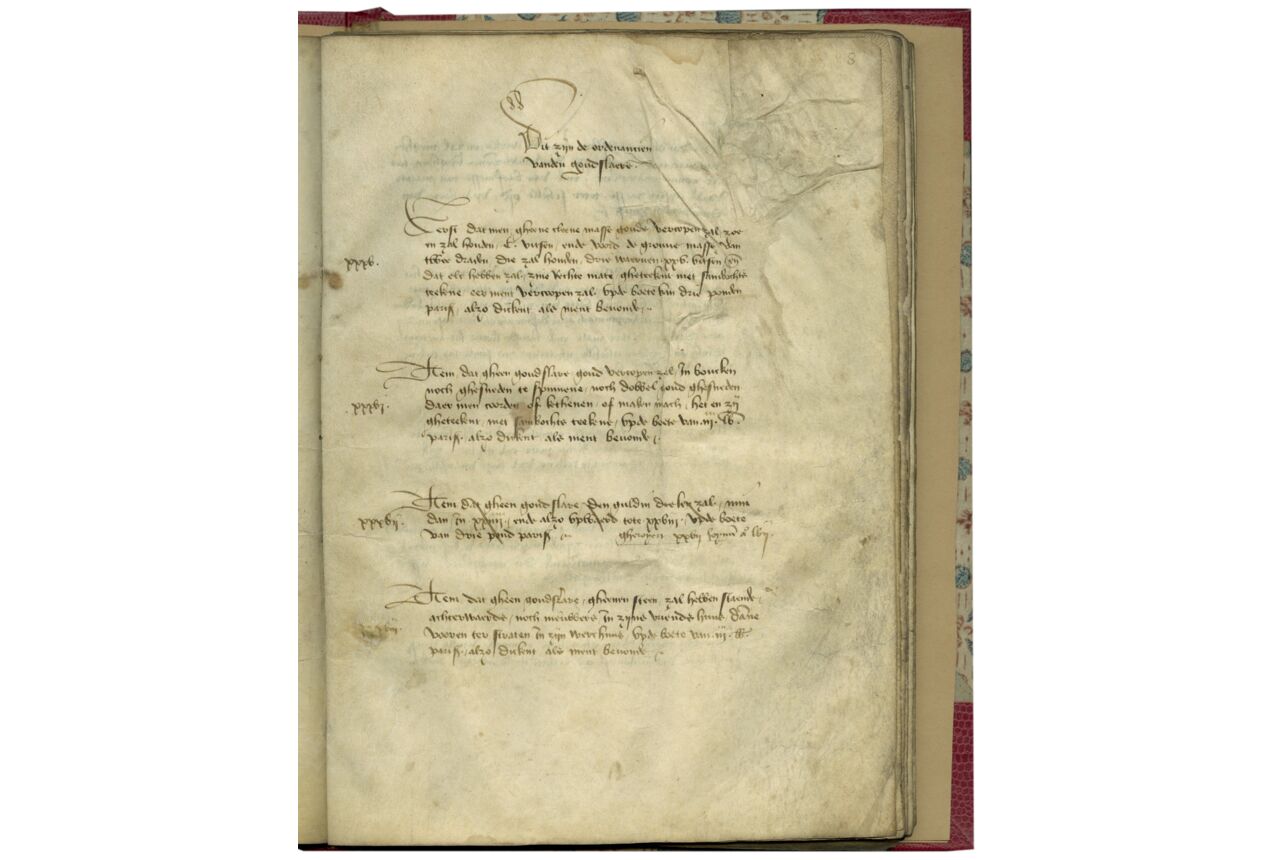 8
Dit zijn de ordenancien
vanden goudslaers
Eerst dat men gheene cleene masse gouds vercopen zal zoe
en zal houden .C. vitsen, ende voord de groune masse van
xxxv.
twee draden die zal houden drie waerven xxv vitsen en
dat elc hebben zal zine rechte mate gheteekent met sambochts
teekene eer ment vercoopen zal up de boete van drie ponden
paris, alzo dickent als ment bevonde
Item dat gheen goudslare goud vercopen zal in boucken
noch ghesneden te spinnene, noch dobbel goud ghesneden
xxxvi.
daer men coorden of kethenen of maken mach, het en zij
gheteekent met sambochts teekene, up de boete van .iii. lb.
paris. alzo dickent als ment bevonde
Item dat gheen goudslare den guldin drelen zal, min
xxxvij.
dan in xxiiii, ende alzo upwaerd tote xxviii, up de boete
van drie pond paris
Item dat gheen goudslare, gheenen steen zal hebben staende
achterwaerds, noch nieuwers in zijns vriends huus, dan
vooren ter straten in zijn werchuus, up de boete van .iii. lb.
paris. alzo dickent als ment bevonde